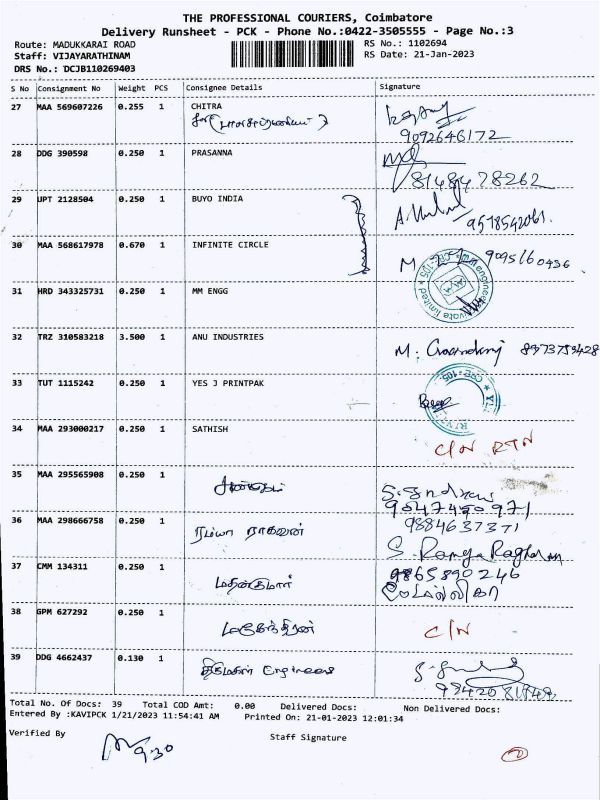 THE PROFESSIONAL COURIERS, Coimbatore
Delivery Runsheet - PCK - Phone No.:0422-3505555 - Page No.:3
Route: MADUKKARAI ROAD
RS No.: 1102694
Staff: VIJAYARATHINAM
RS Date: 21-Jan-2023
DRS No.: DCJB110269403
S No Consignment No Weight PCS Consignee Details Signature
27 MAA 569607226 0.255 1 CHITRA
9092646172
28 DDG 390598 0.250 1 PRASANNA
8148478262
29 UPT 2128504 0.250 1 BUYO INDIA
9578542061.
30 MAA 568617978 0.670 1 INFINITE CIRCLE
9095160436
31 HRD 343325731 0.250 1 MM ENGG
32 TRZ 310583218 3.500 1 ANU INDUSTRIES
8973759428
33 TUT 1115242 0.250 1 YES J PRINTPAK
34 MAA 293000217 0.250 1 SATHISH
C/N RTN
35 MAA 295565908 0.250 1
9047450971
36 MAA 298666758 0.250 1 ரம்யா ராகவன்
9884637371
S. Ramya Raghavan
37 CMM 134311 0.250 1 மதன்குமார்
9865890246
38 GPM 627292 0.250 1 மகேந்திரன்
C/N
39 DDG 4662437 0.130 1 திருமகள் Engineers
Total No. Of Docs: 39 Total COD Amt: 0.00 Delivered Docs: Non Delivered Docs:
Entered By :KAVIPCK 1/21/2023 11:54:41 AM Printed On: 21-01-2023 12:01:34
Verified By
Staff Signature
9.30